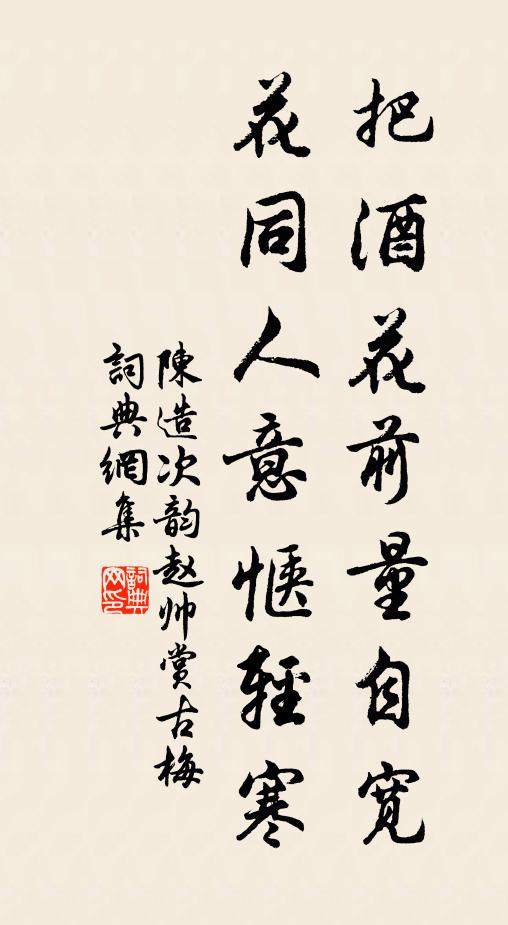 把酒花前量自寬
花同人意愜輕寒
陳造次韵赵帅賞古梅
詞典網集
詞典网印